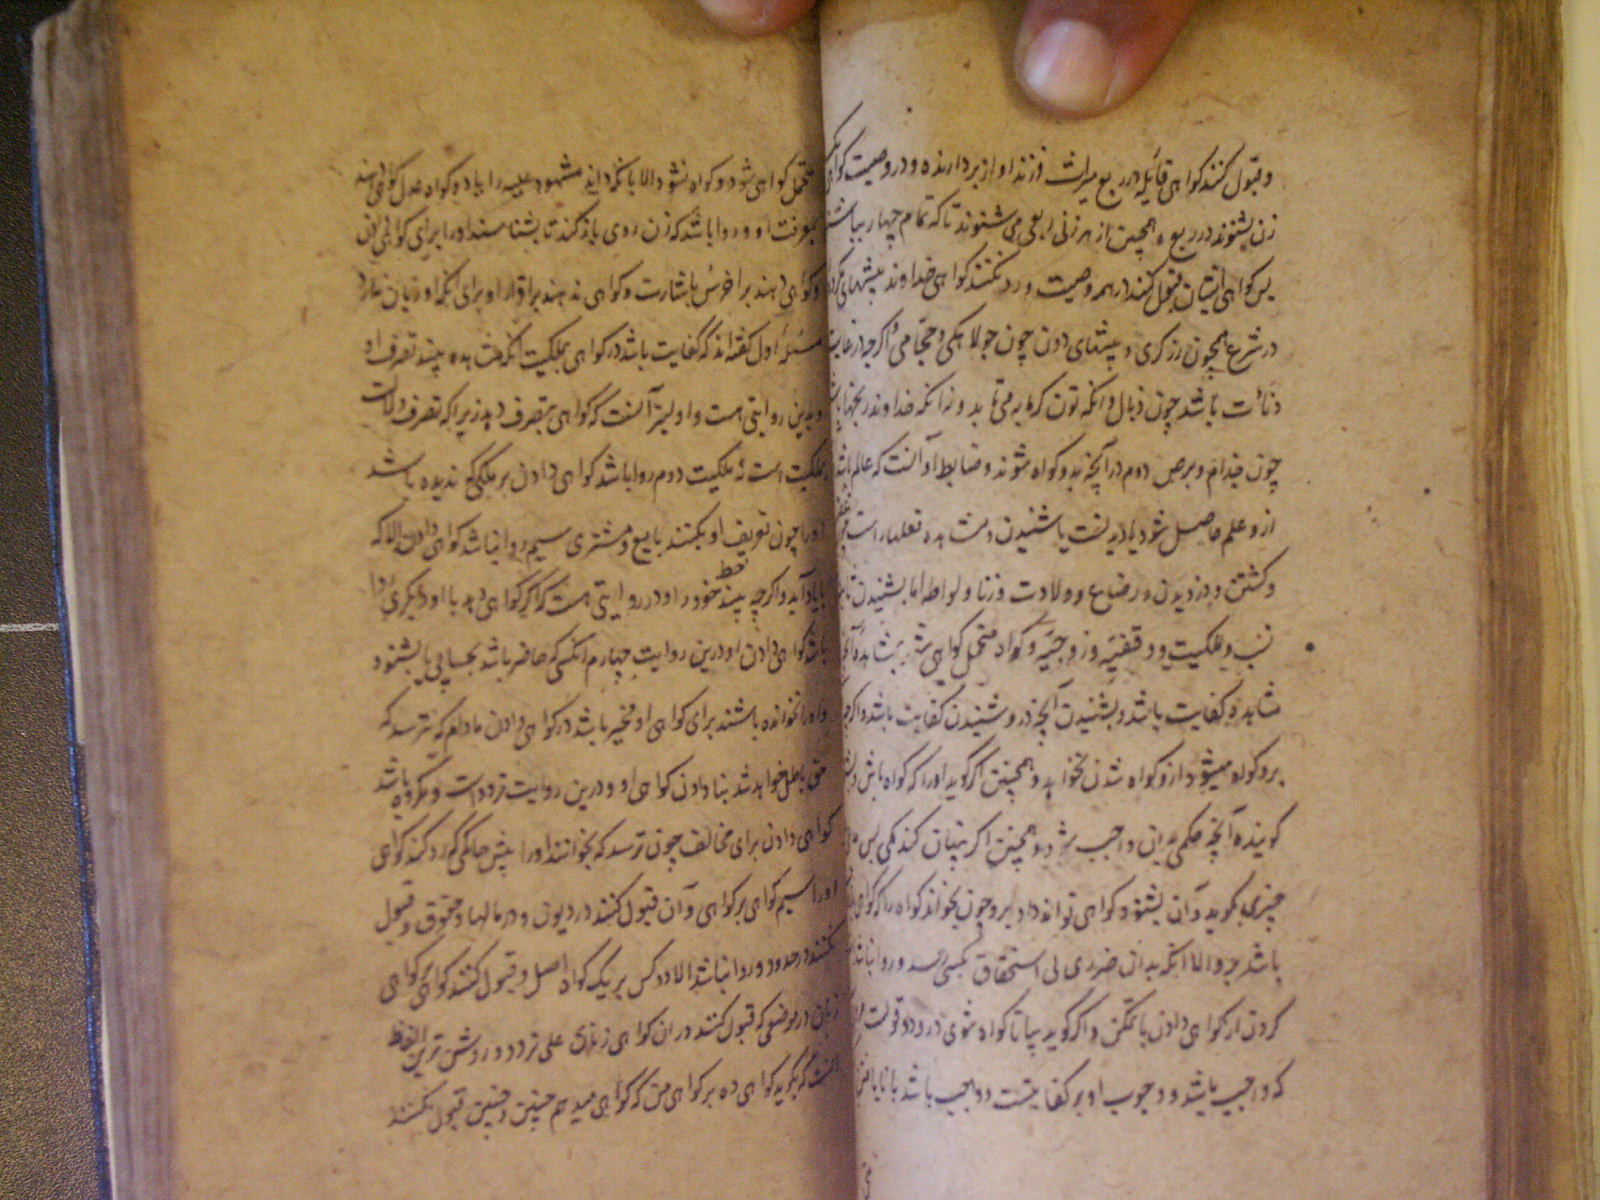 و قبول کنند کواهی قابله در ربع میراث فرزند او از بردارنده و در وصیت کواهی
زن بشنوند در ربع و همچنین از هر زنی ربعی می شنوند تا که تمام چهار بباشند
پس کواهی ایشان قبول کنند در همه وصیت و رد نکنند کواهی خداوند پیشهای مکروه
در شرع همچون زرکری و پیشهای دون چون جولاهکی و حجامی اکرچه در غایت
دنائت باشد چون ذبال و آنکه تون کرمابه می تابد و نه آنکه خداوند رنجها باشد
چون جذام و برص دوم در آنچه بدو کواه شوند و ضابط او آنست که عالم باشد
از و علم حاصل شود یا دیدنست یا شنیدن و مشاهده افعال راست چون غصب
و کشتن و دزدیدن و رضاع و ولادت و زنا و لواطه اما بشنیدن ثابت
نسب و ملکیت و وقفیه و زوجیه و کواه متحمل کواهی شود بمشاهده آنچه
مشاهده کفایت باشد و بشنیدن آنچه درو شنیدن کفایت باشد و اکرچه
برو کواه میشود ازو کواه شدن نخواهد و همچنین اکر کوید او را که کواه باش و بشنود
کوینده آنچه حکمی بدان واجب شود و همچنین اکر پنهان کند یکی پس
چیزی بکوید و آن بشنود کواهی تواند داد برو چون بخواند کواه را اکر کواهی
باشد بر و الا آنکه بدان ضرری بی استحقاق بکسی رسد و روا نباشد
کردن از کواهی دادن با تمکن و اکر کوید بیا تا کواه شوی درو دو قولست
که واجب باشد و وجوب او بر کفایتست و واجب باشد با نایافتن
متحمل کواهی شود و کواه نشود الا با آنکه داند مشهود علیه را یا دو کواه عدل کواهی دهند
بمعرفت او و روا باشد که زن روی باز کند تا بشناسند او را برای کواهی
و کواهی دهند بر اخرس باشارت و کواهی ندهند بر اقرار او برای آنکه او زبان ندارد
مسئله اول کفته اند که کفایت باشد در کواهی بملکیت آنکه مشاهده بیند تصرف او
و بدین روایتی هست و اولیتر آنست که کواهی بتصرف دهد زیرا که تصرف دلالت
بملکیت است نه ملکیت دوم روا باشد کواهی دادن بر ملکی که ندیده باشد
او را چون تعریف او بکنند بایع و مشتری سیم روا نباشد کواهی دادن الا که
با یاد آید و اکرچه بیند خط خود را و در روایتی هست که اکر کواهی دهد با او دیکری روا
باشد کواهی دادن او درین روایت چهارم آنکسی که حاضر باشد بحسابی یا بشنود
و او را نخوانده باشند برای کواهی او مخیر باشد در کواهی دادن مادام که نترسد که
حق باطل خواهد شد بنا دادن کواهی او و درین روایت ترددست و مکروه باشد
کواهی دادن برای مخالف چون ترسد که بخوانند او را پیش حاکمی که رد کند کواهی
او را سیم کواهی بر کواهی و آن قبول کنند در دیون و در مالها و حقوق و قبول
نکنند در حدود و روا نباشد الا دو کس بر یک کواه اصل و قبول کنند کواهی کواهی
زنان در موضعی که قبول کنند در آن کواهی زنان علی تردد و روشن ترین الفاظ
آنست که بکوید کواهی ده بر کواهی من که کواهی میدهم چنین و چنین قبول نکنند